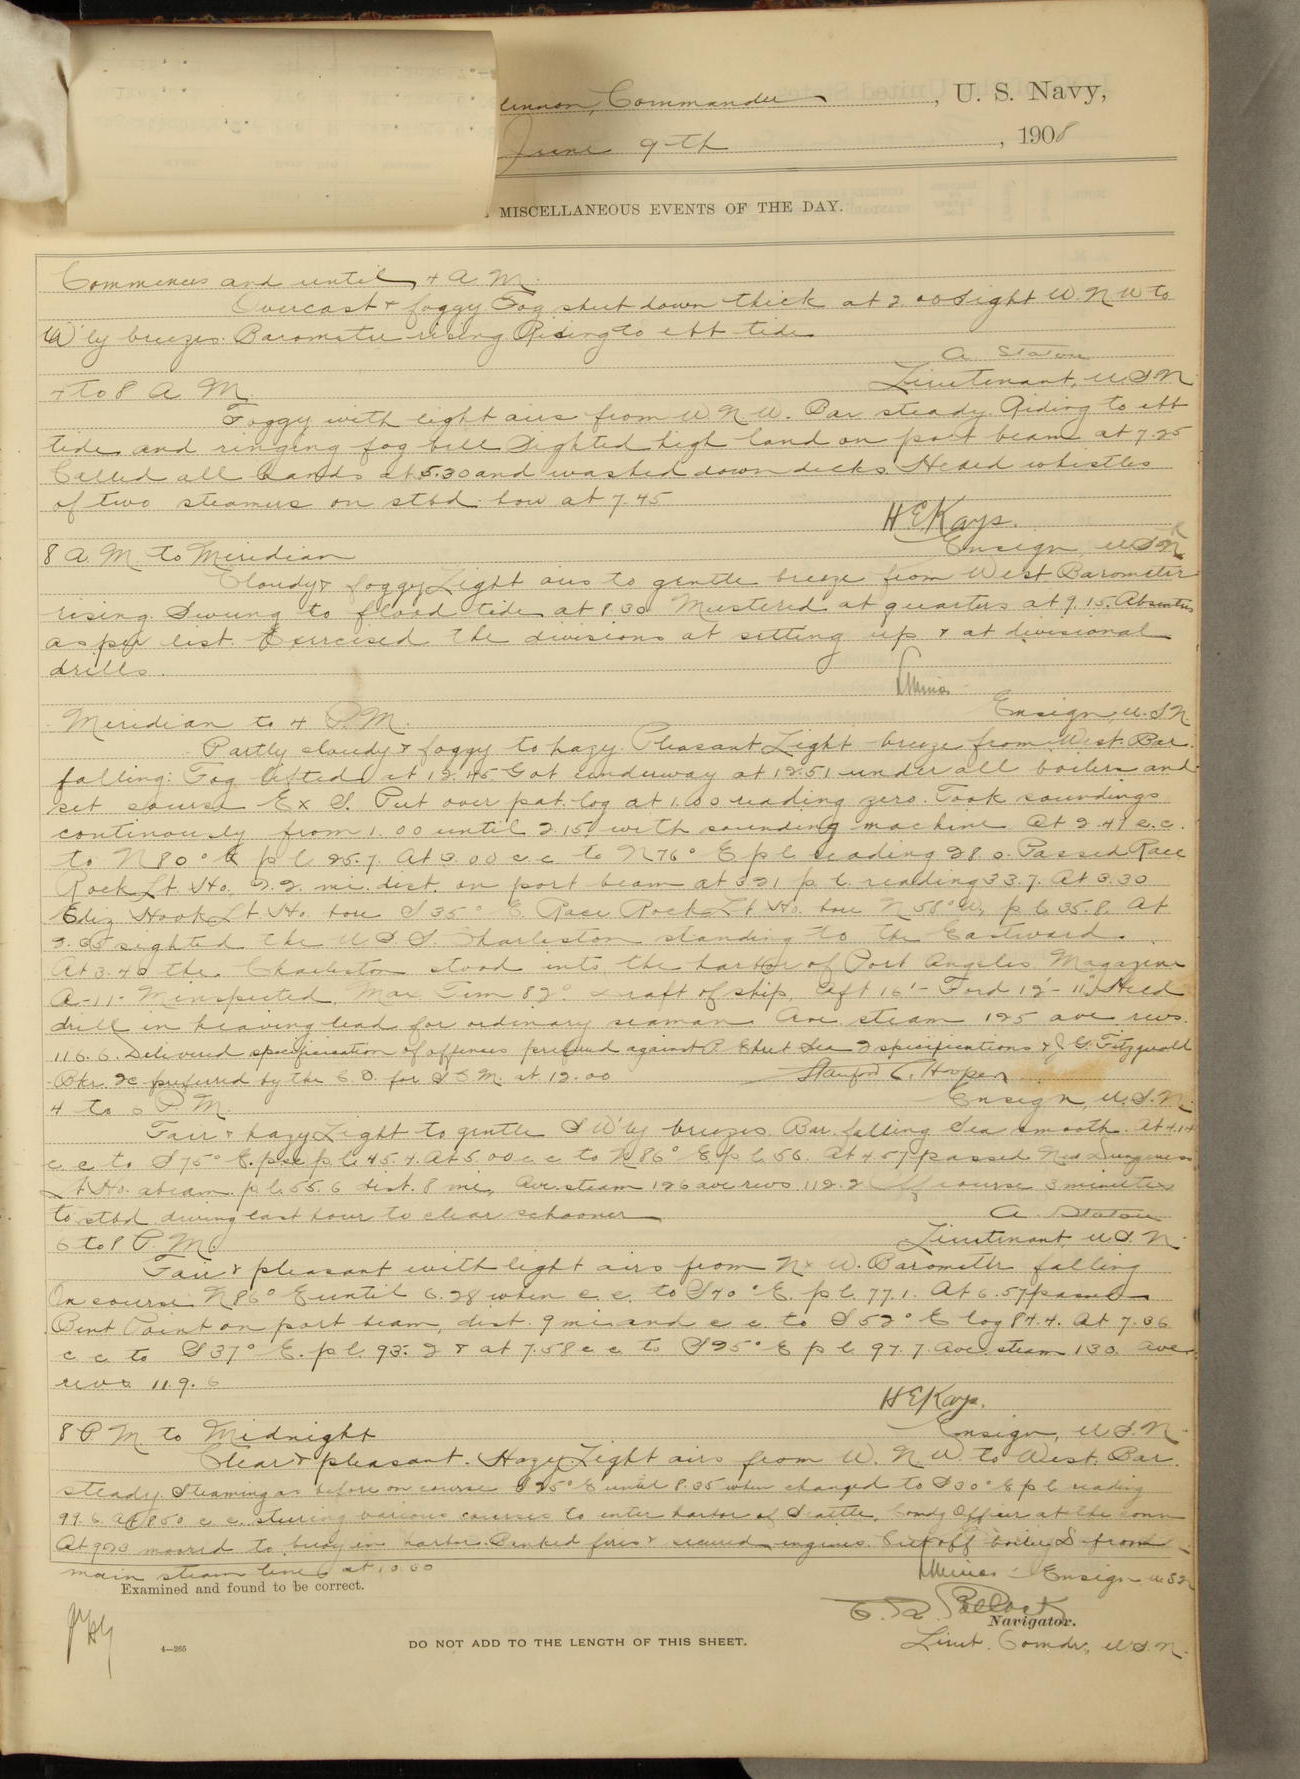 Commander, U. S. Navy,
June 9th, 1908
MISCELLANEOUS EVENTS OF THE DAY.
Commences and until 4 A.M.
Overcast & foggy Fog shut down thick at 2.00 Light W.N.W to
W'ly breezes. Barometer rising Riding to ebb tide
A Staton
Lieutenant, U.S.N
4 to 8 A.M.
Foggy with light airs from W.N.W. Bar steady. Riding to ebb
tide and ringing fog bell Sighted high land on port beam at 7.25
Called all hands at 5.30 and washed down decks. Heard whistles
of two steamers on stbd. bow at 7.45
H E Kays.
Ensign, U.S.N
8 A.M. to Meridian
Cloudy & foggy Light airs to gentle breeze from West Barometer
rising. Swung to flood tide at 8.30. Mustered at quarters at 9.15. Absentees
as per list. Exercised the divisions at setting up & at divisional
drills.
Ensign, U.S.N.
Meridian to 4 P.M.
Partly cloudy & foggy to hazy. Pleasant Light breeze from West. Bar.
falling. Fog lifted at 12.45 Got underway at 12.51 under all boilers and
set course E x S. Put over pat. log at 1.00 reading zero. Took soundings
continously from 1.00 until 2.15 with sounding machine. At 2.47 c.c.
to N 80° E p l 25.7. At 3.00 c c to N 76° E p l reading 28.0. Passed Race
Rock Lt. Ho. 2.2 mi. dist. on port beam at 3.21 p. l. reading 33.7. At 3.30
Ediz Hook Lt Ho. bore S 35° E. Race Rock Lt Ho. bore N 58° W, p l 35.8. At
sighted the U.S.S. Charleston standing to the Eastward.
At 3.40 the Charleston stood into the harbor of Port Angeles Magazine
A-11-M inspected. Max Tem 82°. Draft of ship, Aft 16'- Ford 12'-11". Held
drill in heaving lead for ordinary seaman. Ave. steam 125 ave revs.
116.6. Delivered specification of offenses prefered against P. Sea 2 specifications & J. G. Fitzgerald
Bkr. 2c preferred by the C.O. for S.C.M. at 12.00
Stanford C. Hooper
Ensign, U.S.N.
4 to 6 P.M.
Fair & hazy Light to gentle S W'ly breezes. Bar. falling Sea smooth. At 4.14
c c to S 75° E. psc p l 45.4. At 5.00 c c to N 86° E p l 56. At 4.57 passed New Dungeness
Lt. Ho. abeam. p l 55.6 dist. 8 mi. Ave. steam 126 ave revs. 112.2 Off course 3 minutes
to stbd during last hour to clear schooner
A. Staton
Lieutenant, U.S.N.
6 to 8 P.M.
Fair & pleasant with light airs from N x W. Barometer falling
On course N 86° E until 6.28 when c. c. to S 70° E. p l. 77.1. At 6.57 passed
Point on port beam, dist. 9 mi. and c c to S 52° E log 84.4. At 7.36
c c to S 37° E. p l. 93.2 & at 7.58 c c to S 25° E p l 97.7. Ave. steam 130. ave.
revs 119.6
H E Kays.
Ensign, U.S.N.
8 P.M. to Midnight
Clear & pleasant. Hazy Light airs from W.N.W. to West. Bar.
steady. Steaming as before on course S 25° E until 8.35 when changed to S 30° E p l reading
At 8.50 c c. steering various courses to enter harbor of Seattle, Comdg Officer at the conn
At moored to buoy in harbor. Banked fires & secured engines. Cut off boiler D from
main steam line at 10.00
Ensign U.S.N.
Examined and found to be correct.
Navigator.
Lieut. Comdr, U.S.N.
4—265
DO NOT ADD TO THE LENGTH OF THIS SHEET.